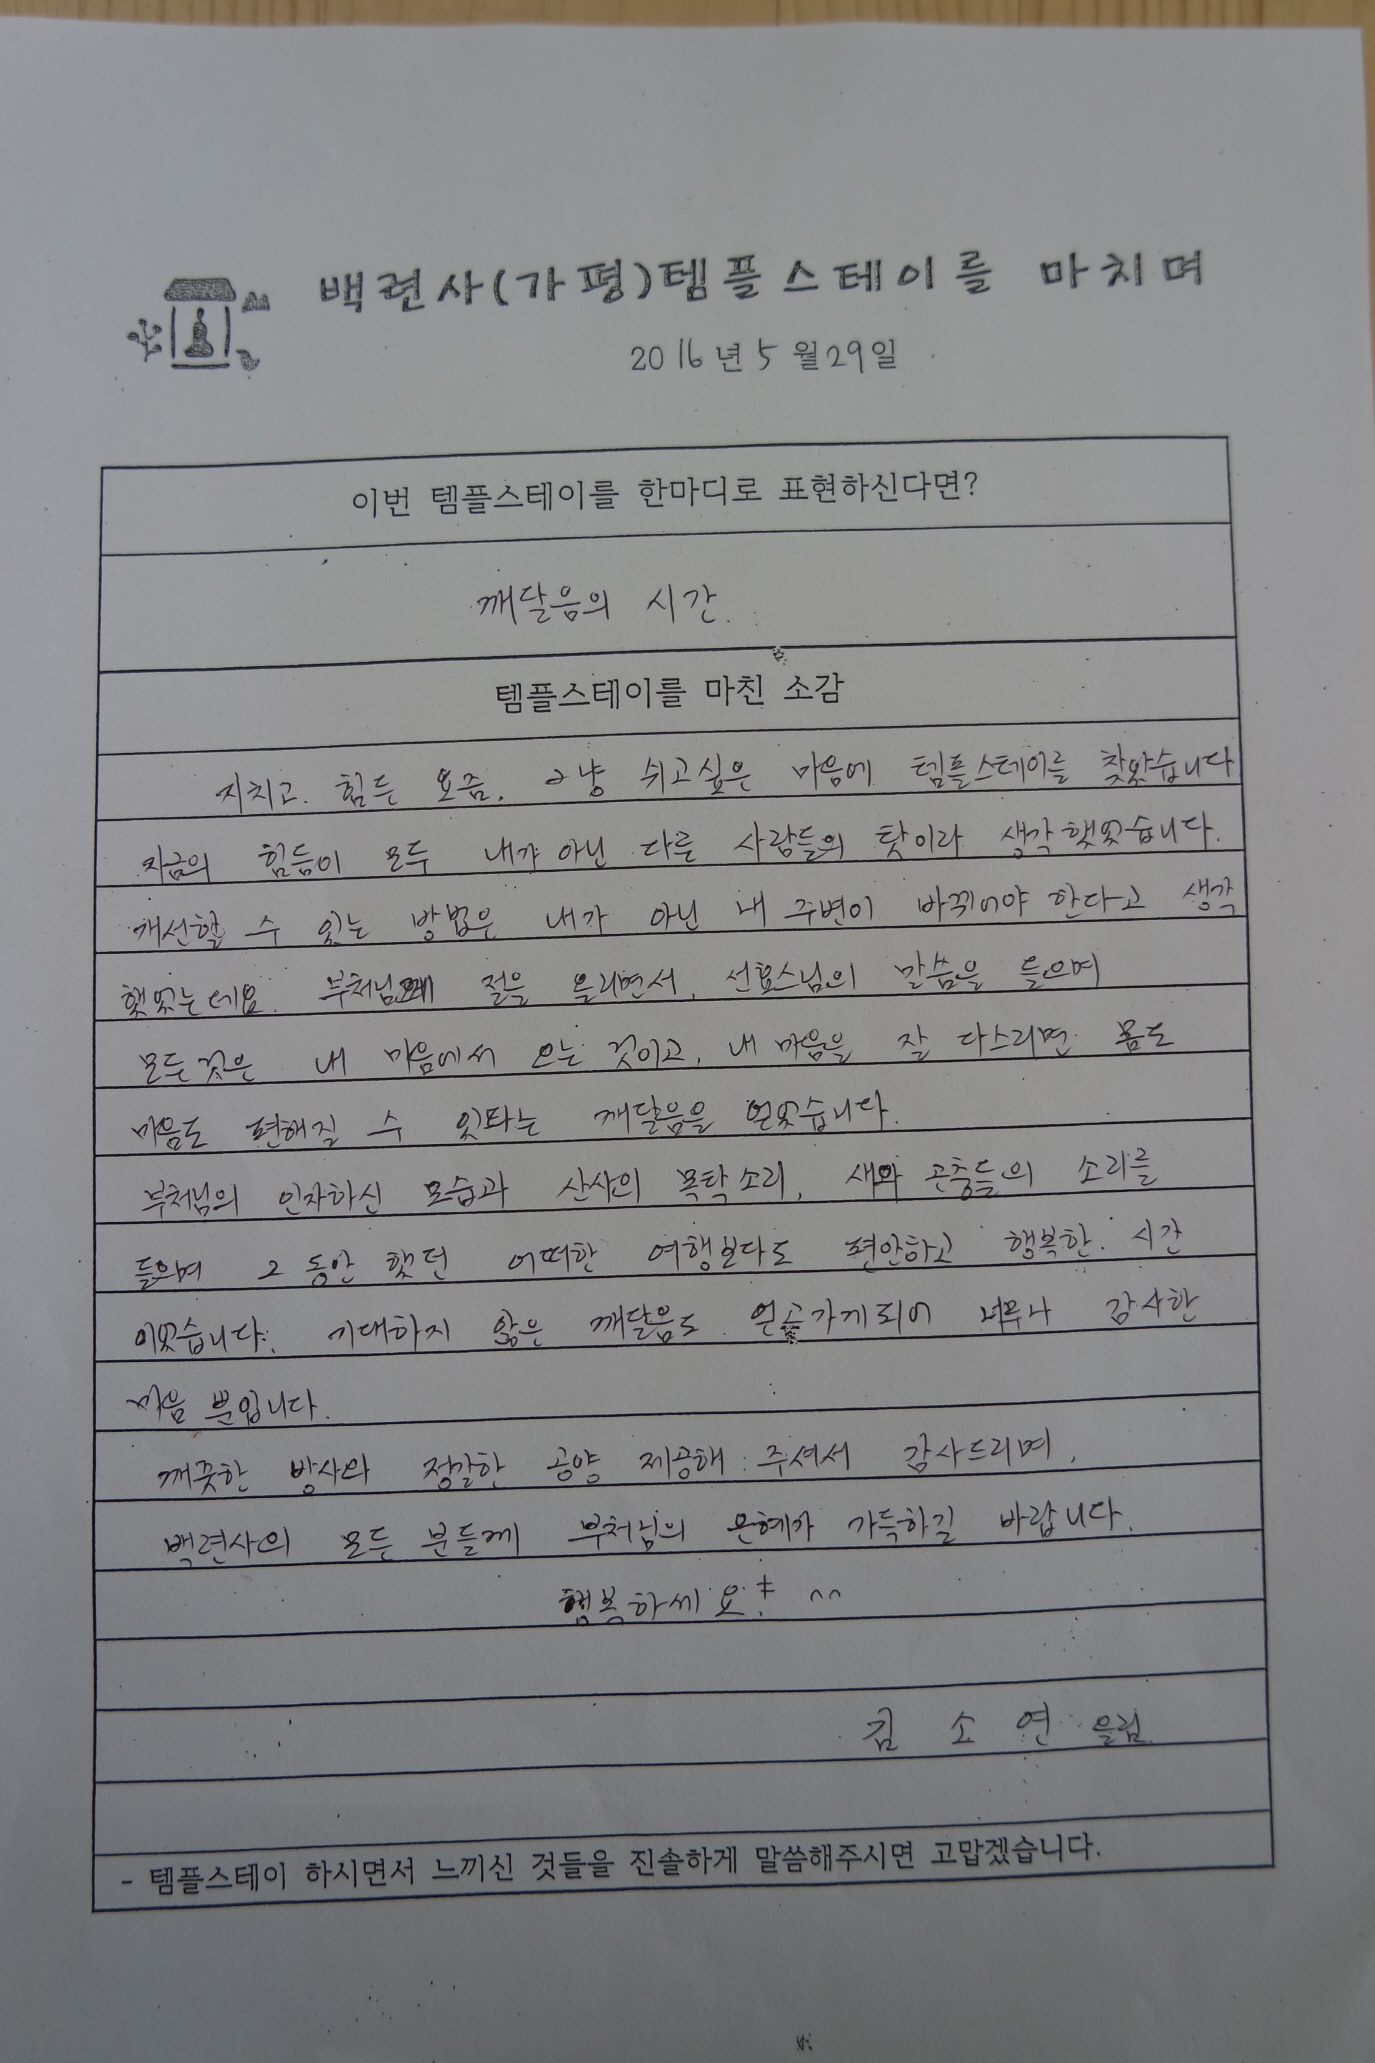 백련사(가평)템플스테이를 마치며
2016년 5월29일
이번 템플스테이를 한마디로 표현하신다면?
깨달음의 시간.
템플스테이를 마친 소감
지치고. 힘든 요즘. 그냥 쉬고싶은 마음에 템플스테이를 찾았습니다
지금의 힘듦이 모두 내가 아닌 다른 사람들의 탓이라 생각했었습니다.
개선할 수 있는 방법은 내가 아닌 내 주변이 바뀌어야 한다고 생각
했었는데요. 부처님께 절을 올리면서, 선효스님의 말씀을 들으며
모든것은 내 마음에서 오는 것이고, 내 마음을 잘 다스리면 몸도
마음도 편해질 수 있다는 깨달음을 얻었습니다.
부처님의 인자하신 모습과 산사의 목탁소리, 새와 곤충들의 소리를
들으며 그 동안 했던 어떠한 여행보다도 편안하고 행복한 시간
이었습니다. 기대하지 않은 깨달음도 얻고가게되어 너무나 감사한
마음 뿐입니다.
깨끗한 방사와 정갈한 공양 제공해 주셔서 감사드리며,
백련사의 모든 분들께 부처님의 은혜가 가득하길 바랍니다.
행복하세요! ^^
김 소 연 올림.
- 템플스테이 하시면서 느끼신 것들을 진솔하게 말씀해주시면 고맙겠습니다.